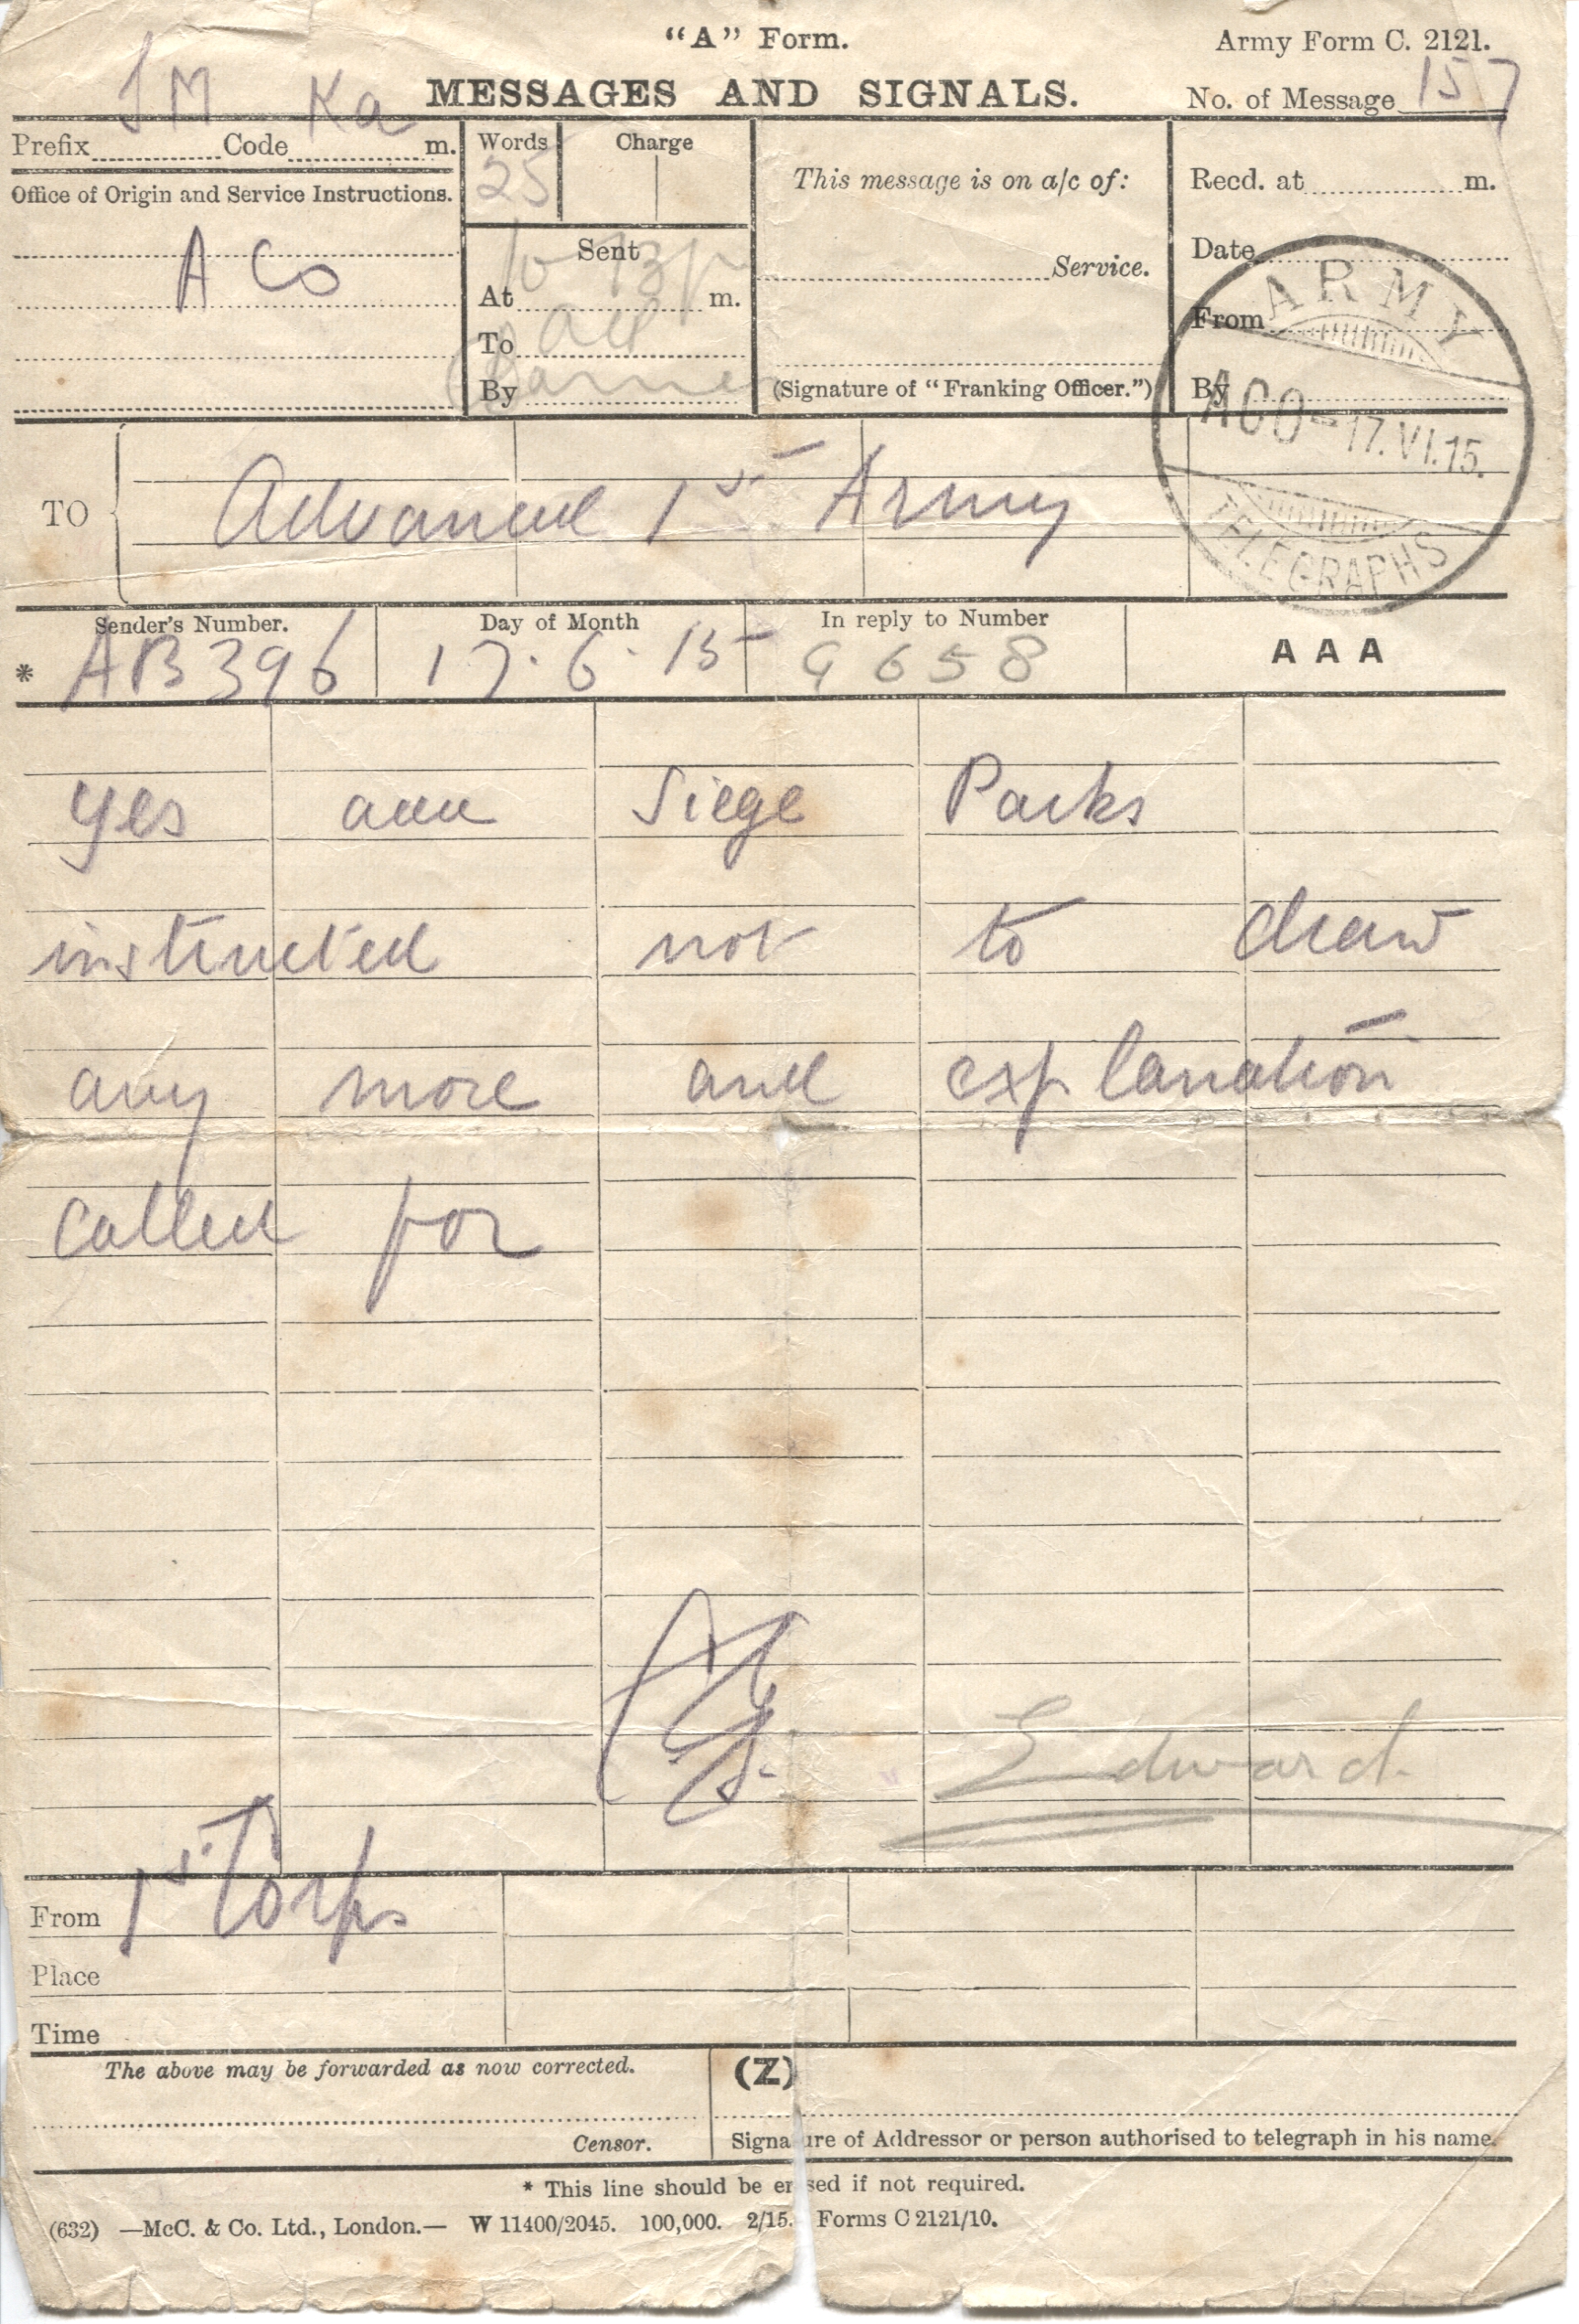 "A" Form.
Army Form C. 2121.
MESSAGES AND SIGNALS.
No. of Message 157
Prefix SM Code Ka m.
Words 25
Charge
This message is on a/c of:
Recd. at m.
Office of Origin and Service Instructions.
A Co
Sent
At m.
To
By
Service.
(Signature of "Franking Officer.")
Date
From
By
ARMY
ACO - 17.VI.15.
TELEGRAPHS
TO Advanced 1st Army
Sender's Number. Day of Month In reply to Number
* AB396 17.6.15 G 658 AAA
yes aaa Siege Parks
instructed not to draw
any more and explanation
called for
Edward
From 1st Corps
Place
Time
The above may be forwarded as now corrected. (Z)
Censor. Signature of Addressor or person authorised to telegraph in his name.
* This line should be erased if not required.
(632) —McC. & Co. Ltd., London.— W 11400/2045. 100,000. 2/15. Forms C 2121/10.